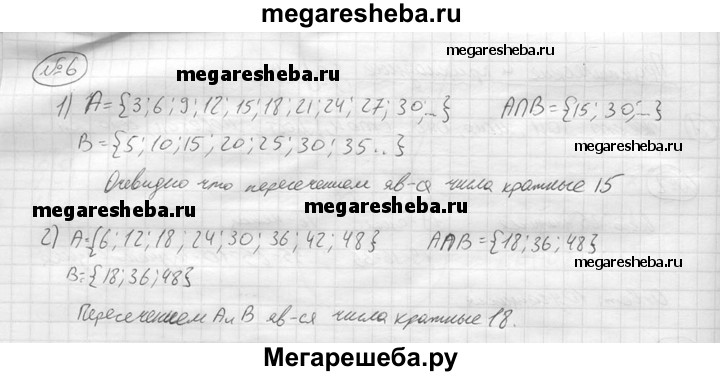 megaresheba.ru
№6
megaresheba.ru
megaresheba.ru
1) A={3;6;9;12;15;18;21;24;27;30;...} A∩B={15;30;...}
B={5;10;15;20;25;30;35..}
Очевидно что пересечением яв-ся числа кратные 15
megaresheba.ru
2) A={6;12;18;24;30;36;42;48} A∩B={18;36;48}
B={18;36;48}
megaresheba.ru
Пересечением A и B яв-ся числа кратные 18.
Мегарешеба.ру